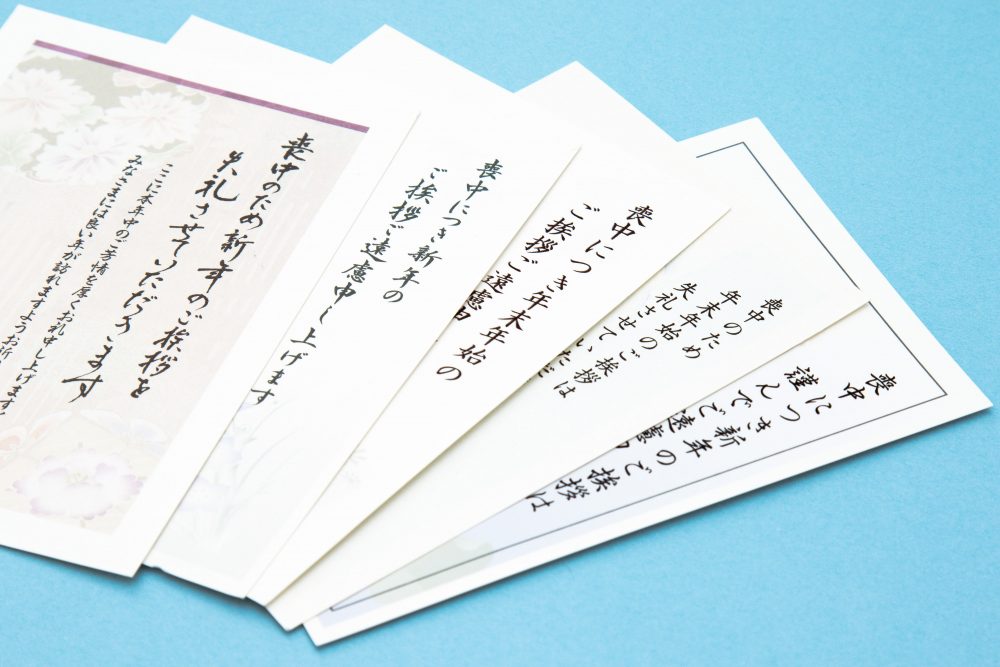 喪中のため新年のご挨拶を
失礼させていただきます
ここに本年中のご芳情を厚くお礼申し上げます
みなさまには良い年が訪れますようお祈り
喪中につき新年の
ご挨拶ご遠慮申し上げます
喪中につき年末年始の
ご挨拶ご遠慮申
喪中のため
年末年始のご挨拶は
失礼させていただ
喪中につき新年のご挨拶は
謹んでご遠慮